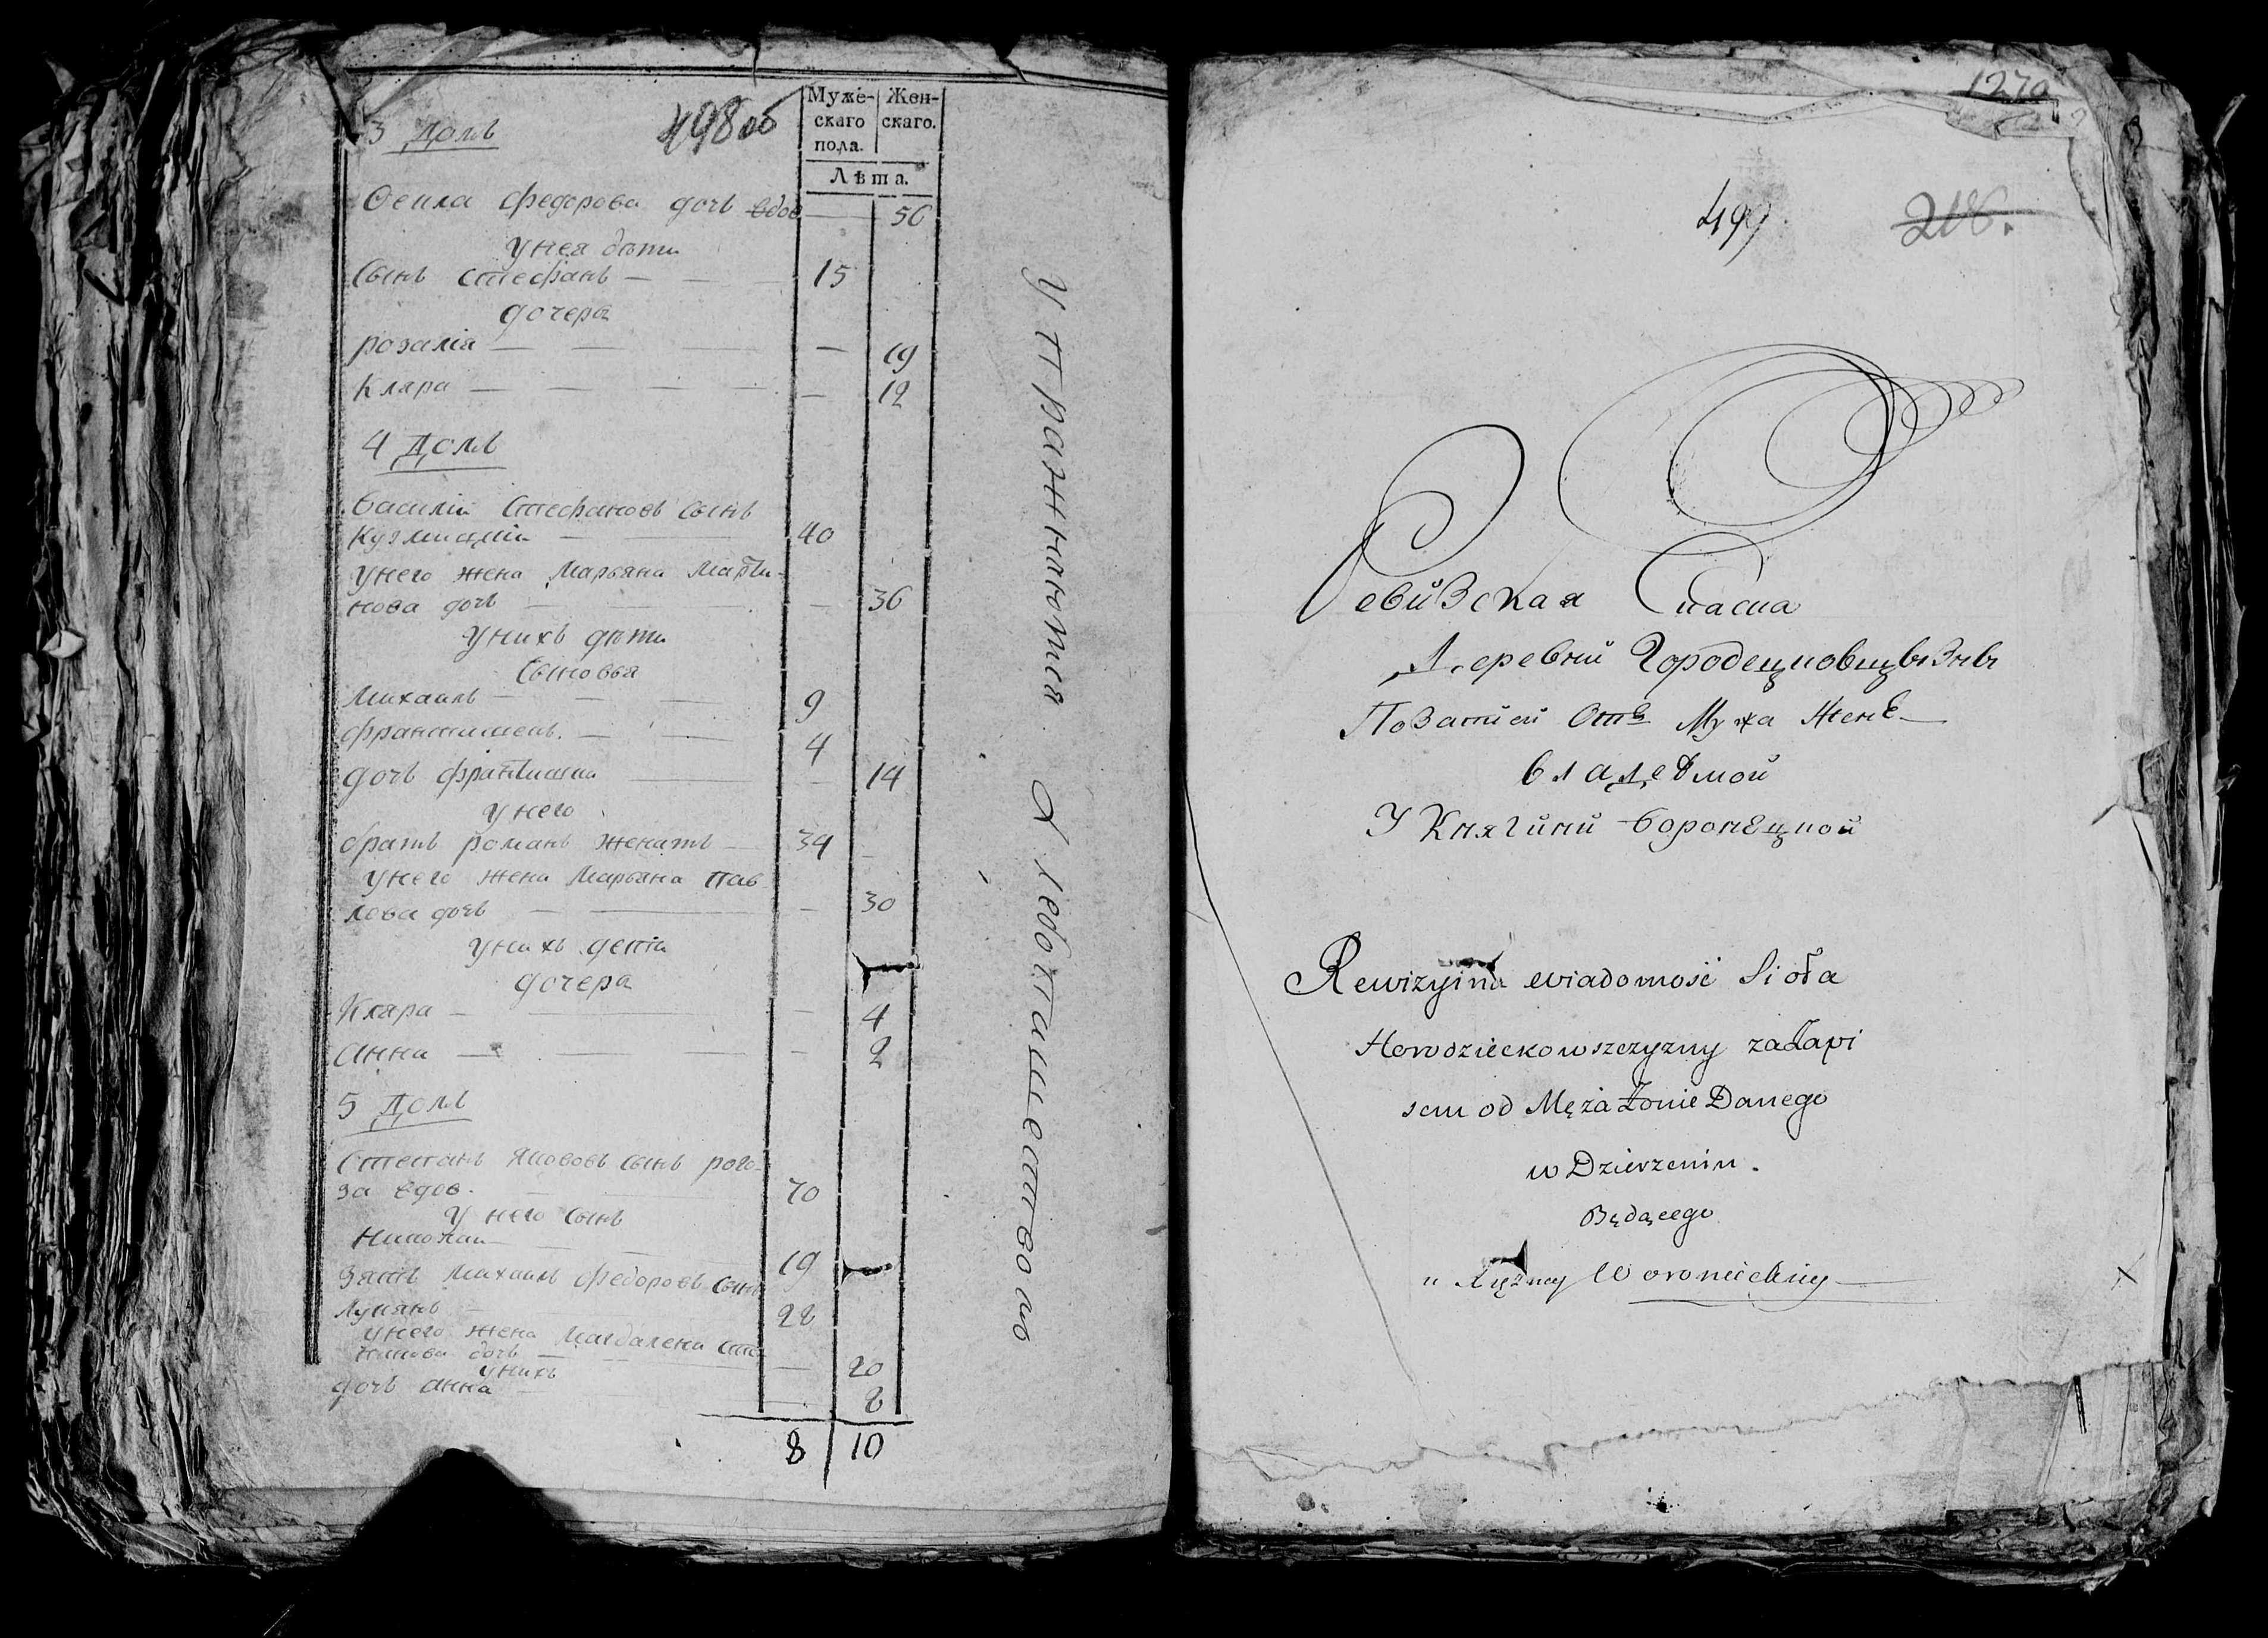 498 об
Муже- Жен-
скаго скаго.
пола.
Лѣта.
3 Домъ
Фекла Федорова дочь вдов — 56
у нея дѣти
Сынъ Стефанъ — — — 15
дочера
розалія — — — — 19
Клара — — — — — 12
4 Домъ
Василій Стефановъ сынъ
Кузмицкій — — 40
у него жена Марьяна Марти-
нова дочь — — — 36
у нихъ дѣти
Сыновья
Михаилъ — — — 9
Франтишекъ. — — 4
дочь Франтишка — — 14
у него
братъ романъ женатъ — 34 —
у него жена Марьяна Пав
лова дочь — — — 30
у нихъ дети
дочера
Клара — — — 4
Анна — — — — 2
5 Домъ
Степанъ Яковов сынъ рого-
за вдов. — — 70
у него сынъ
Николай — — 19
Зять Михаилъ Федоровъ сынъ
Лукянъ — 22
у него жена Магдалена Сте
панова дочь — — — — 20
у нихъ
дочь Анна — — 2
8 10
Упражнаются Хлебопашеством
1270
499 218.
Ревизская Скаска
Деревни Городецковщызны
По Записи Отъ Мужа Женѣ —
владѣемой
У Княгини Воронѣцкой
Rewizyina wiadomość Sioła
Horodzieckowszczyzny za Zapi
sem od Męża Żonie Danego
w Dzierzeniu.
Będącego
u Xiężney Woronieckiey —